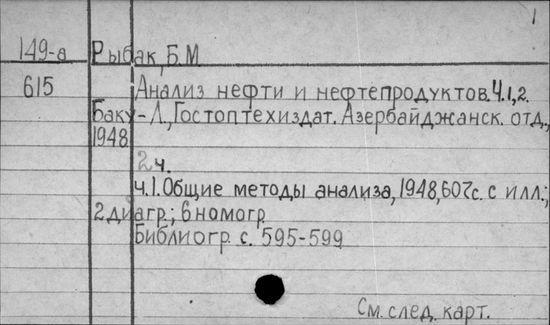 1
149-а Рыбак, Б.М.
615 Анализ нефти и нефтепродуктов. Ч.1,2.
Баку-Л., Гостоптехиздат. Азербайджанск. отд.,
1948
2 ч.
ч.1. Общие методы анализа, 1948, 607с. с илл.;
2 диагр.; 6 номогр.
Библиогр. с. 595-599
См. след. карт.